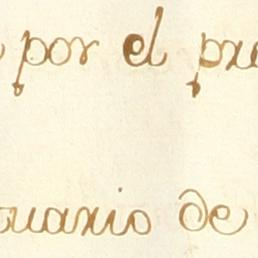 por el pre
uario de